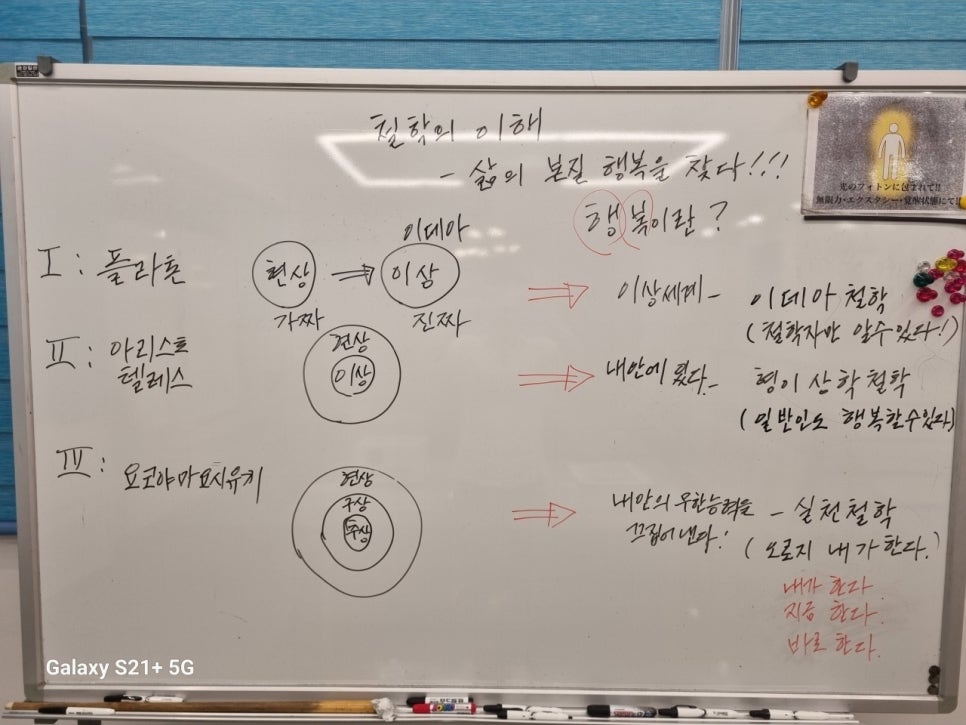 철학의 이해
- 삶의 본질 행복을 찾다!!!
행복이란?
I: 플라톤
현상 ⇒ 이상
이데아
가짜 진짜
⇒ 이상세계 - 이데아 철학
(철학자만 알수있다!)
II: 아리스토
텔레스
현상
이상
⇒ 내안에 있다. - 형이상학철학
(일반인도 행복할수있다)
III: 요코야마요시유키
현상
구상
추상
⇒ 내안의 무한능력을
끄집어낸다! - 실천철학
(오로지 내가 한다.)
내가 한다
지금 한다.
바로 한다.
光のフィトンに包まれて!!
無限力・エクスタシー・覚醒状態にて!!
Galaxy S21+ 5G